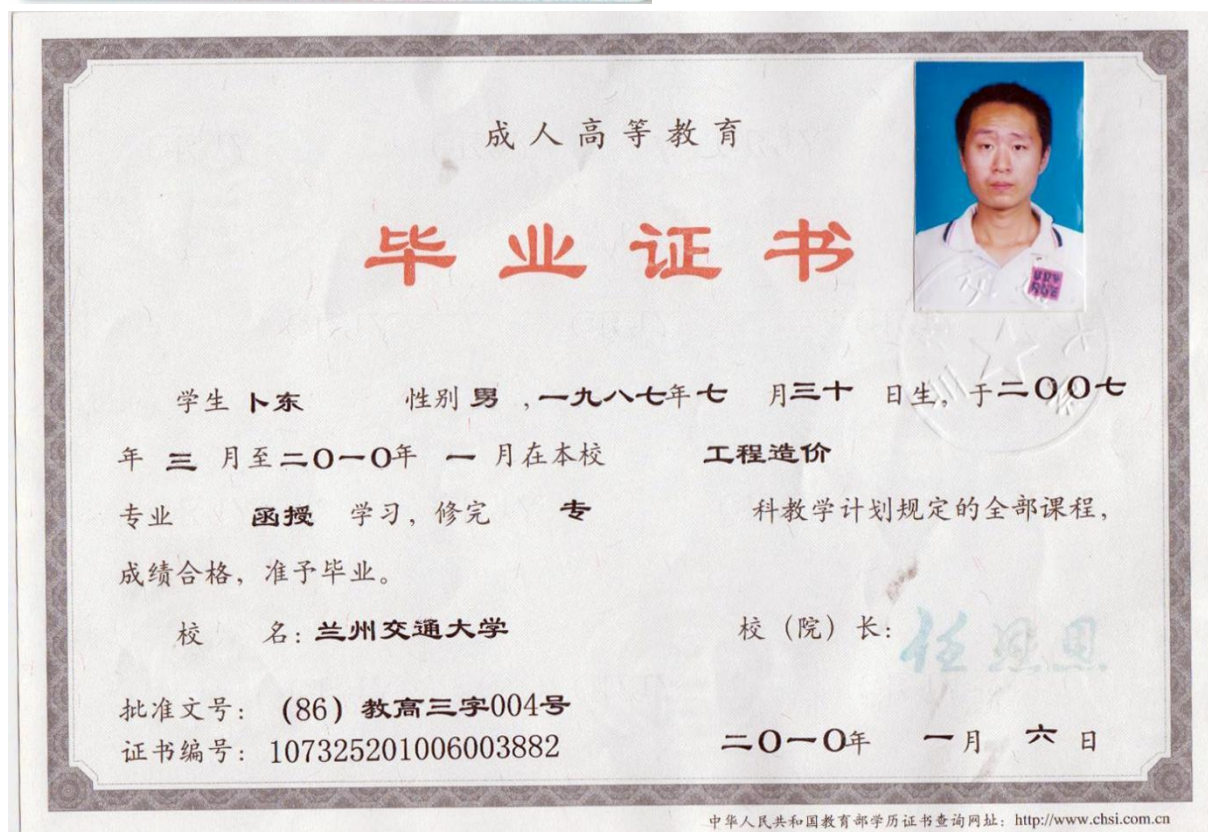 成人高等教育
毕业证书
学生 卜东 性别 男 ,一九八七年 七 月三十 日生, 于二〇〇七
年 三 月至二〇一〇年 一 月在本校 工程造价
专业 函授 学习, 修完 专 科教学计划规定的全部课程,
成绩合格, 准予毕业。
校 名: 兰州交通大学 校（院）长: 任恩恩
批准文号: (86) 教高三字004号
证书编号: 107325201006003882 二〇一〇年 一月 六 日
中华人民共和国教育部学历证书查询网址: http://www.chsi.com.cn